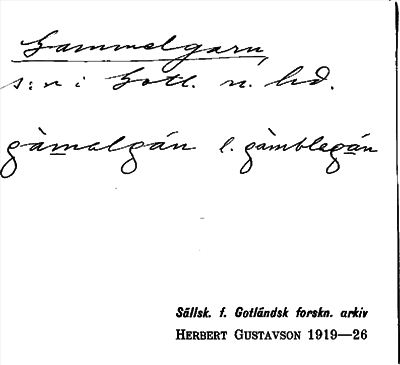 Gammelgarn,
s:n i Gotl. n. hd.
gàmalgán l. gàmblegán
Sällsk. f. Gotländsk forskn. arkiv
HERBERT GUSTAVSON 1919—26